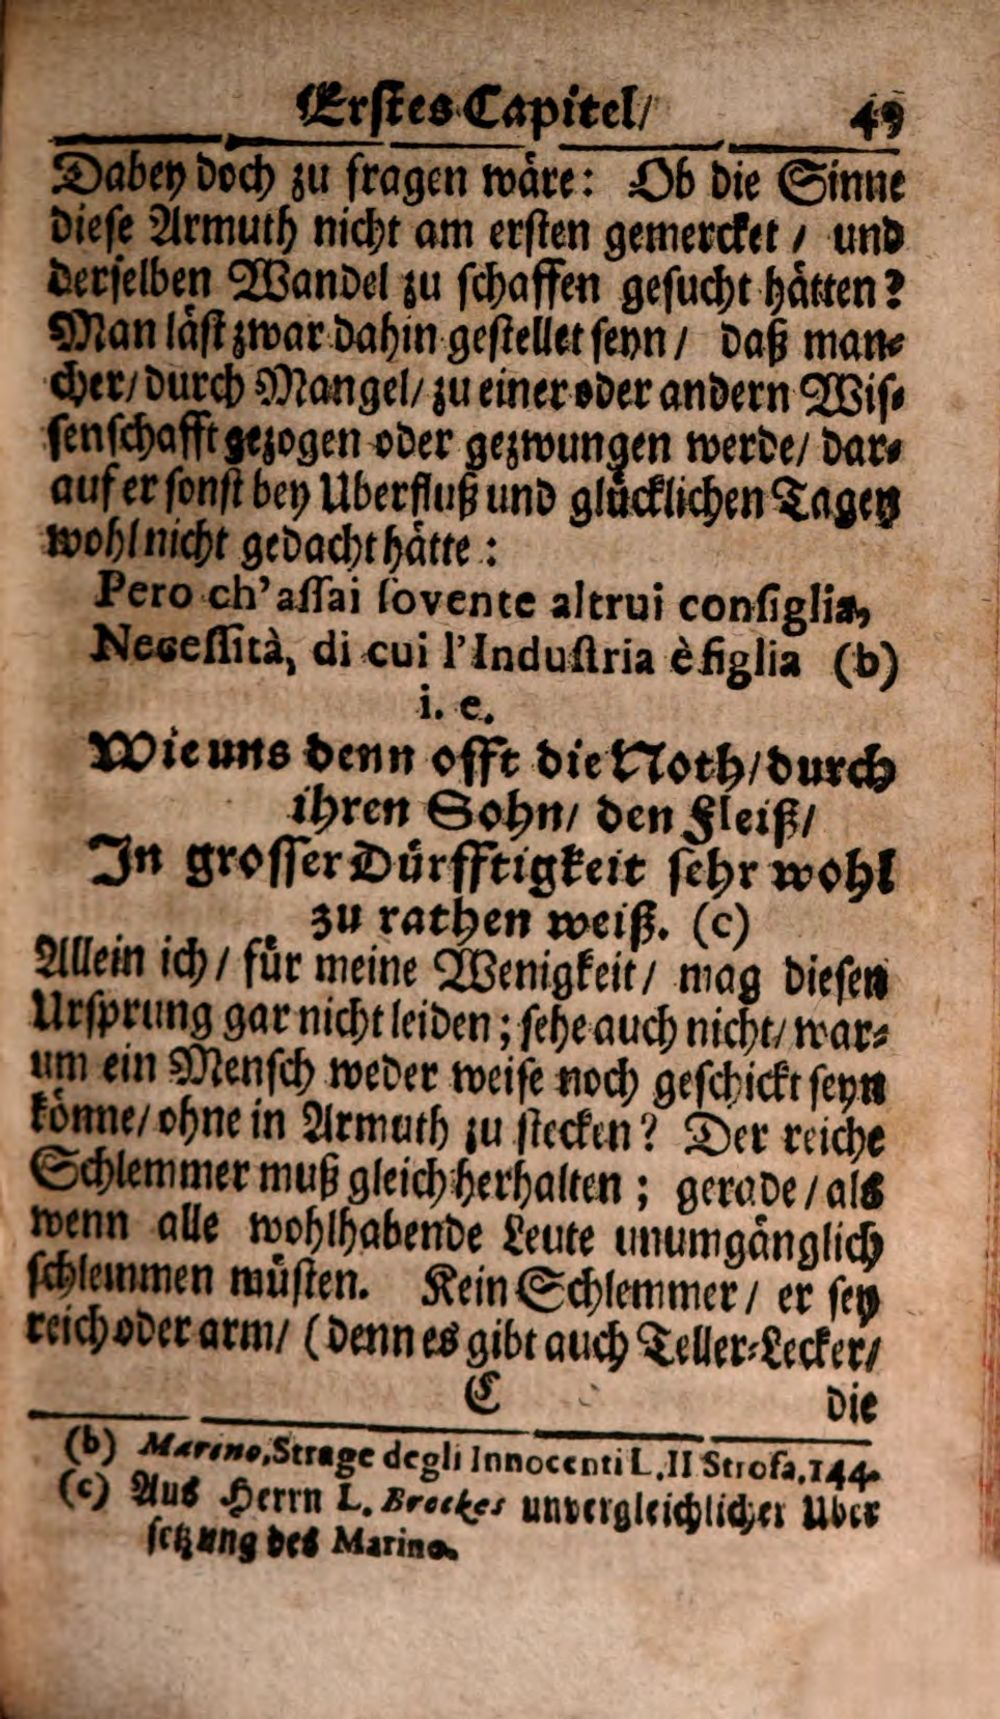 Erstes Capitel/ 49
Dabey doch zu fragen wäre: Ob die Sinne
diese Armuth nicht am ersten gemercket / und
derselben Wandel zu schaffen gesucht hätten?
Man läst zwar dahin gestellet seyn / daß man-
cher/ durch Mangel/ zu einer oder andern Wis-
senschafft gezogen oder gezwungen werde/ dar-
auf er sonst bey Uberfluß und glücklichen Tagen
wohl nicht gedacht hätte:
Pero ch'assai sovente altrui consiglia,
Necessità, di cui l'Industria è figlia (b)
i. e.
Wie uns denn offt die Noth/ durch
ihren Sohn/ den Fleiß/
In grosser Dürfftigkeit sehr wohl
zu rathen weiß. (c)
Allein ich / für meine Wenigkeit/ mag diesen
Ursprung gar nicht leiden; sehe auch nicht/ war-
um ein Mensch weder weise noch geschickt seyn
könne/ ohne in Armuth zu stecken? Der reiche
Schlemmer muß gleich herhalten; gerade / als
wenn alle wohlhabende Leute unumgänglich
schlemmen müsten. Kein Schlemmer / er sey
reich oder arm/ (denn es gibt auch Teller-Lecker/
C die
(b) Marino, Strage degli Innocenti L. II Strofa. 144.
(c) Aus Herrn L. Brockes unvergleichlicher Uber
setzung des Marino.